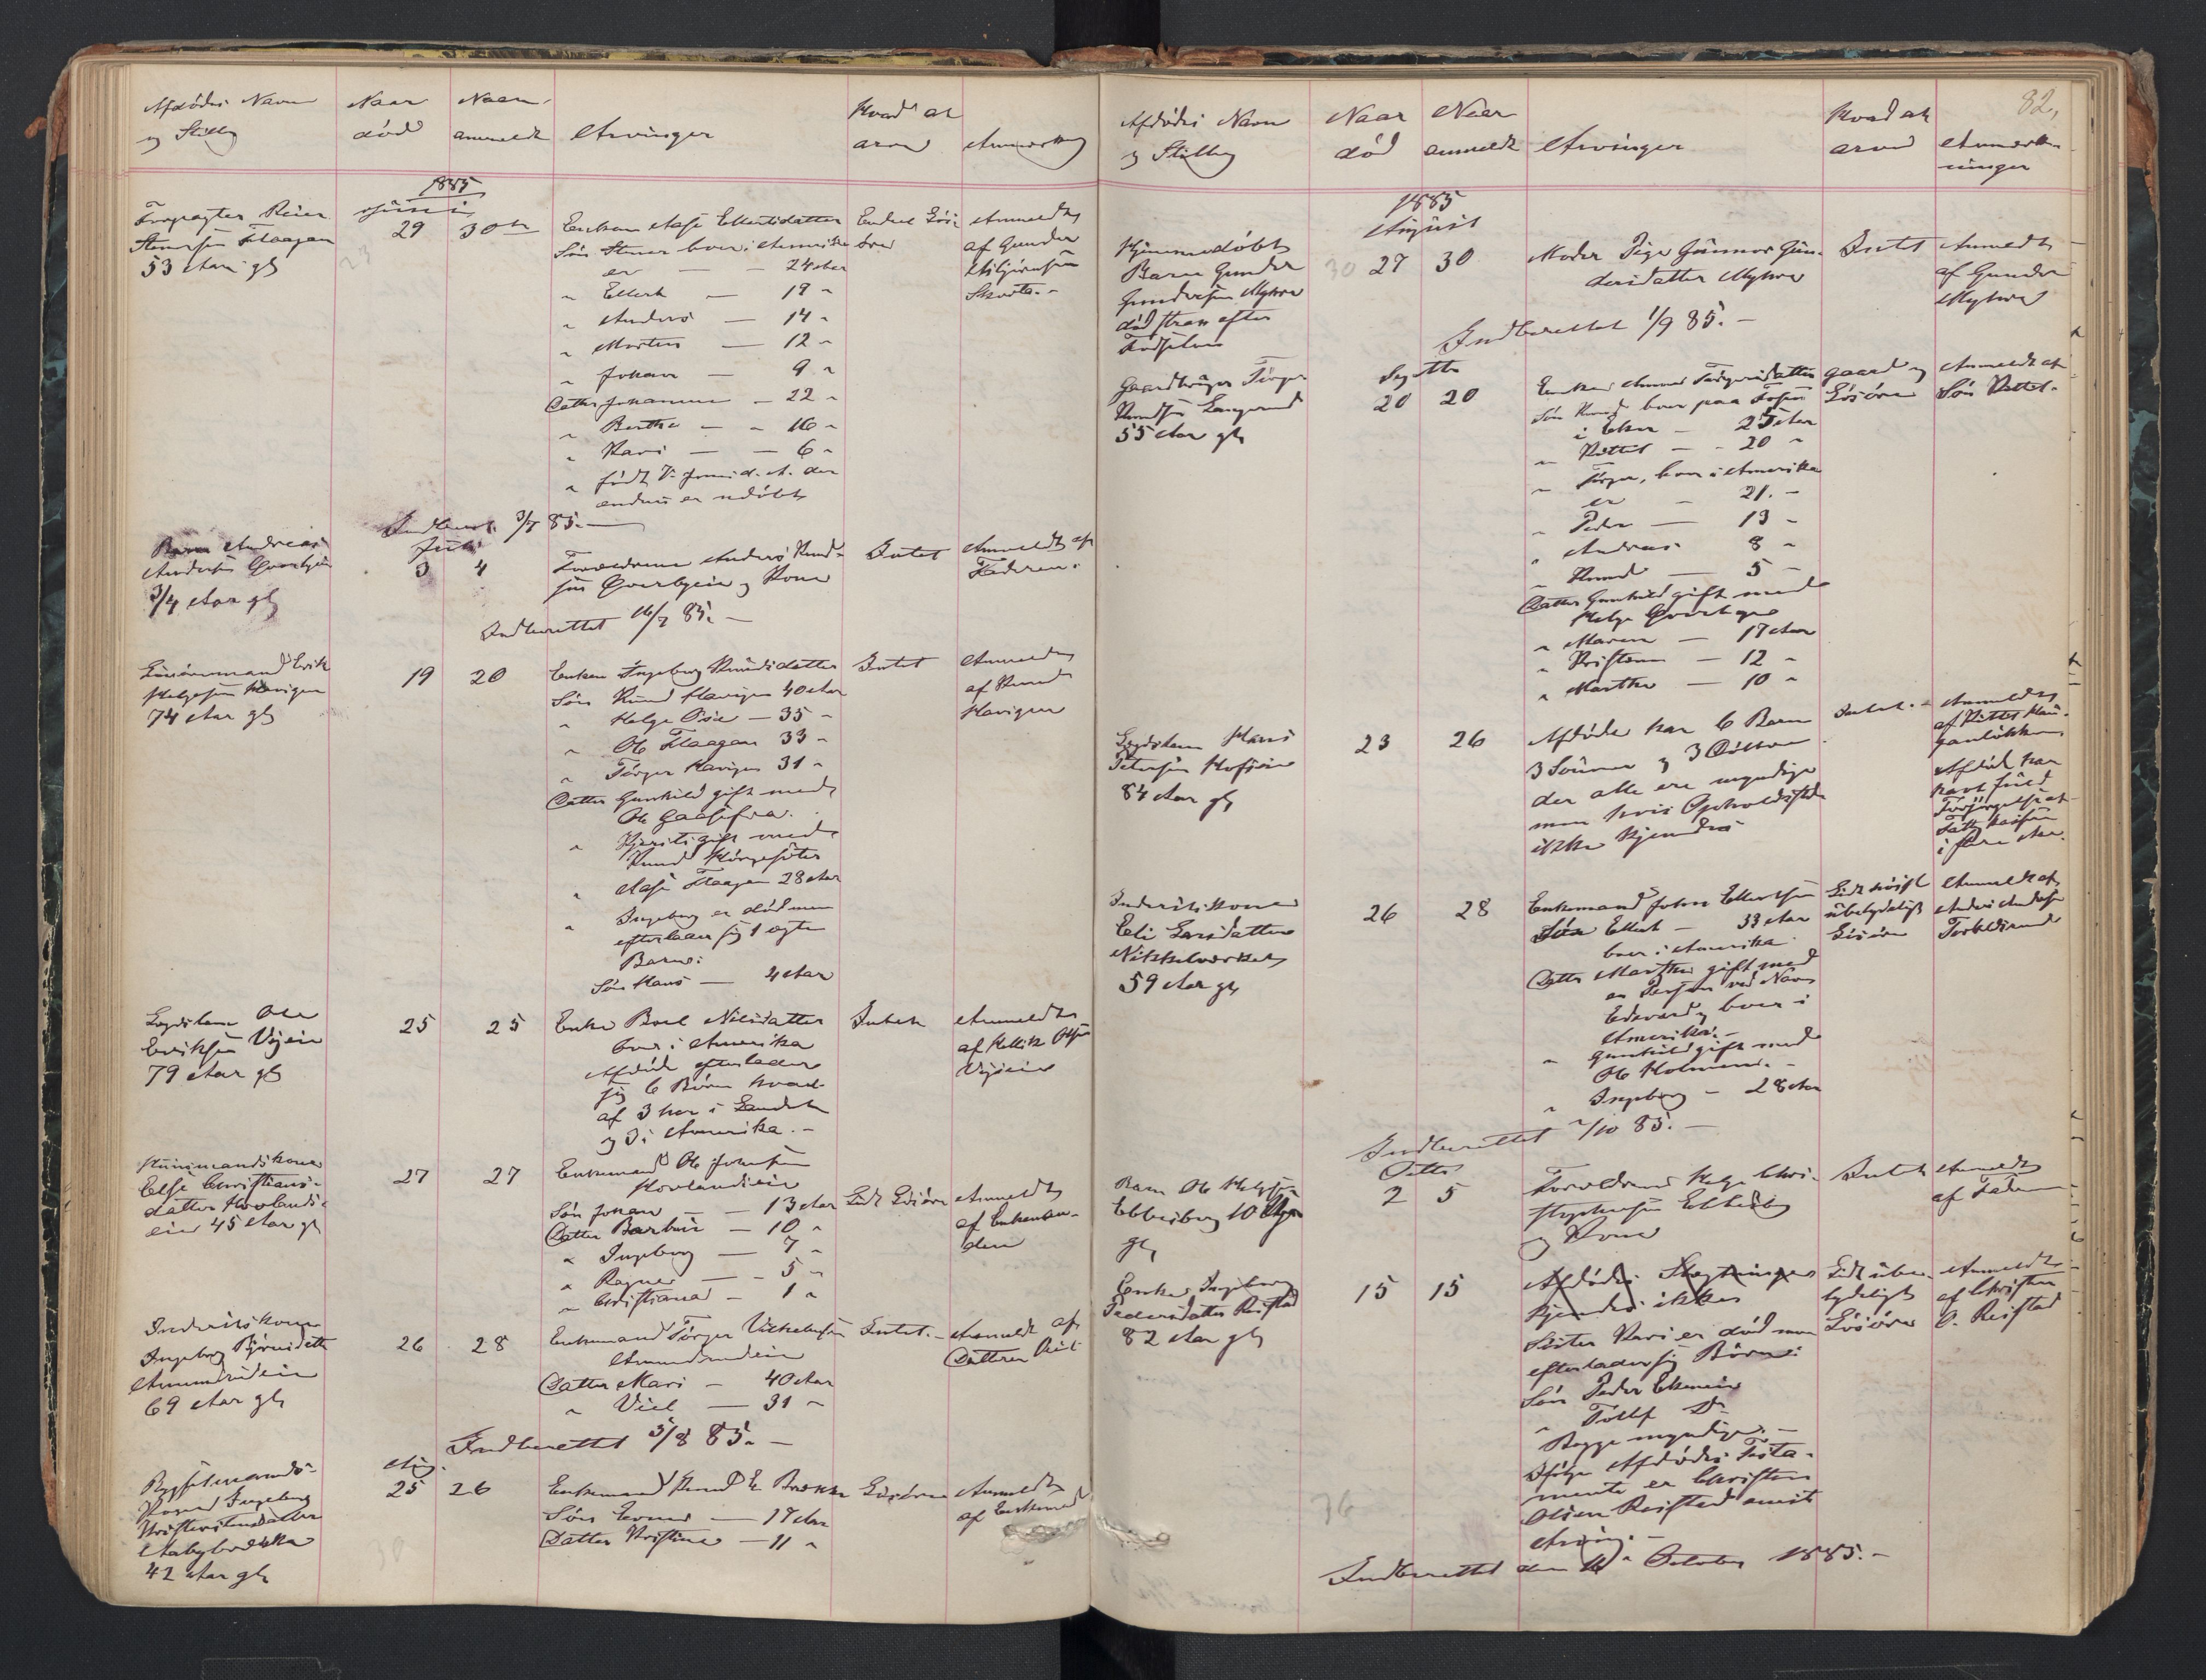 Afdödes Navn
og Stilling
Naar
död
Naar
anmeldt
Arvinger
Hvad at
arve
Anmerkning
1885
Juni
Forpagter Reier
Steners. Flaagan
53 Aar gl.
29
30te
Enken Aase Ellertsdatter
Sön Stener bor i Amerika
er — 24 Aar
" Ellert — 19 "
" Anders — 14 "
" Morten — 12 "
" Johan — 9 "
Datter Johanne — 22 "
" Berthe — 16 "
" Kari — 6 "
" född Juni d. A. der
endnu er udöbt
Endel Lös-
öre
Anmeldt
af Gunder
Skarta.-
Indberet. 3/7 85.—
Juli
Barn Andreas
Andersen Qverbyeie
3/4 Aar gl.
3
4
Forældrene Anders Knud-
sen Qverbyeie og Kone
Intet
Anmeldt af
Faderen.
Indberettet 16/7 85.—
Lösöremand Erik
Helgesen Havigen
74 Aar gl.
19
20
Enken Ingeborg Knudsdatter
Sön Knud Havigen 40 Aar
" Helge — 35 "
" Ole Flaagan 33 "
" Törger Havigen 31 "
Datter Gunhild gift med
Ole
" Kjersti gift med
Knud
" Aase Flaagan 28 Aar
" Ingeborg er död men
efterlader sig 1 ægte
Barn:
Sön Hans — 4 Aar
Intet
Anmeldt
af Knud
Havigen
Lægdslem Ole
Eriksen Vejeie
79 Aar gl.
25
25
Enke Boel Nilsdatter
bor i Amerika
Afdöde efterlader
sig 6 Börn hvoraf
af 3 her i Landet
og 3 i Amerika.-
Intet
Anmeldt
af Kittil Olsen
Vejeie
Huusmandskone
Else Christians-
datter Hovlands-
eie 45 Aar gl
27
27
Enkemand Ole Johnsen
Hovlandseie
Sön Johan — 13 Aar
Datter Barbra — 10 "
" Ingeborg — 7 "
" Ragne — 5 "
" Christiane — 1 "
Lidt Lösöre
Anmeldt
af Enkeman-
den
Inderstkone
Ingeborg Björnsdatter
Amundrudeie
69 Aar gl.
26
28
Enkemand Törger Vilhelmsen
Amundrudeie
Datter Mari — 40 Aar
" Viel — 31 "
Intet.-
Anmeldt af
Datteren
Indberettet 5/8 85.—
Aug.
Bygselmands-
Kone Ingeborg
Kristensdatter
Aabybrække
42 Aar gl.
25
26
Enkemand Knud E. Brække
Sön Even — 17 Aar
Datter Kristine — 11 "
Lösöre
Anmeldt
af Enkemand
30
82,
Afdödes Navn
og Stilling
Naar
död
Naar
anmeldt
Arvinger
Hvad at
arve
Anmærk-
ninger
1885
August
Hjemmedöbt
Barn Gunder
Gundersen Myhre
död strax efter
Födselen
30 27
30
Moder Pige Gunnor Gun-
dersdatter Myhre
Intet
Anmeldt
af Gunder
Myhre
Indberettet 1/9 85.—
Septbr
Gaardbruger Törger
Knudsen Langerud
55 Aar gl.
20
20
Enken Anne Torgersdatter
Sön Knud bor paa
i Eker — 25 Aar
" Kittil — 20 "
" Törger, bor i Amerika
er — 21.—
" Peder — 13 "
" Andreas 8 "
" Knud — 5 "
Datter Gunhild gift med
Helge
" Maren — 17 Aar
" Kristense — 12 "
" Marthe — 10 "
Gaard og
Lösöre
Anmeldt af
Sön Kittil.
Lægdslem Hans
Petersen Hofseie
84 Aar gl.
23
26
Afdöde har 6 Barn
3 Sönner og 3 Döttre
der alle ere myndige
men hvis Opholdssted
ikke kjendes
Intet.-
Anmeldt
af Kittil Hau-
ganlökken
Afdöde har
havt fuld
Forsörgelse af
Fattigkassen
i flere Aar.
Inderstkone
Eli Larsdatter
Nikkelverket
59 Aar gl.
26
28
Enkemand John Ellertsen
Sön Ellert — 33 Aar
bor i Amerika
Datter Marthe gift med
en Person ved Navn
Edevard, bor i
Amerika.—
" Gunhild gift med
Ole Holmen.—
" Ingeborg — 28 Aar
Lidt höist
ubetydeligt
Lösöre
Anmeldt af
Anders Andersen
Indberettet 2/10 85.—
Octbr
Barn Ole Helgesen
Ebbesberg 10 Dage
gl.
2
5
Forældrene Helge Chri-
stophersen Ebbesberg
og Kone
Intet
Anmeldt
af Faderen
Enke Ingeborg
Pedersdatter Reistad
82 Aar gl.
15
15
Afdödes Slægtninge
kjendes ikke
Söster Kari er död men
efterlader sig Börn:
Sön Peder Ekeneie
" Tollef Do
Begge myndige.—
Ifölge Afdödes Testa-
mente er Christen
Olsen Reistad eneste
Arving.—
Lidt ube-
tydeligt
Lösöre
Anmeldt
af Christen
O. Reistad
Indberettet den 16 October 1885.—